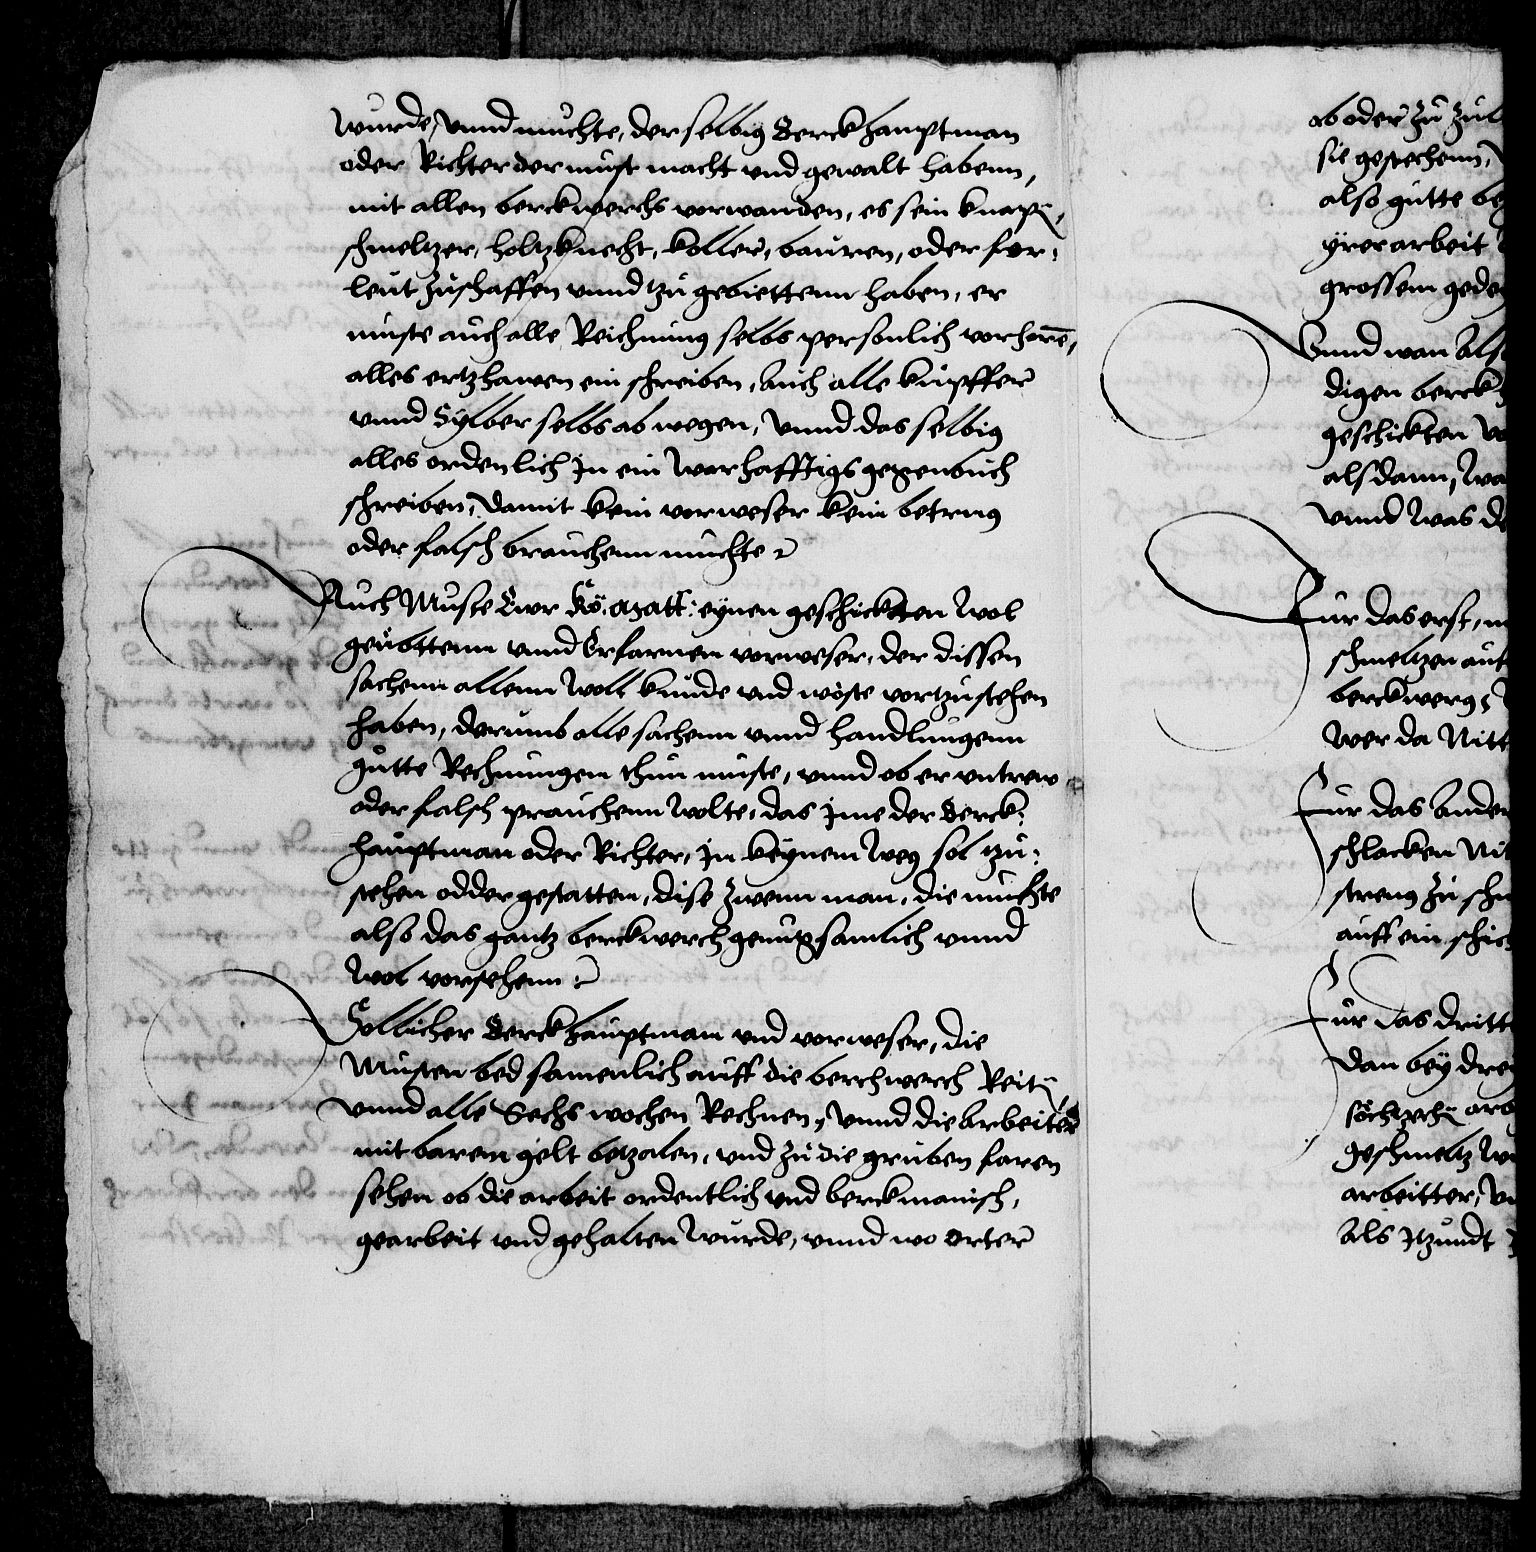 wurde, vnnd muchte, der selbig Berckhauptman
oder Richter der must macht vnd gewalt habenn,
mit allen berckwerchs vorwanden, es sein knapñ,
schmeltzer, holtzknecht, koller, bauren, oder for-
leut zuschaffen vnnd tzu gebiettenn haben, er
muste auch alle Reichnung selbs personlich vorhorē,
alles ertzhawen ein schreiben, Auch alle kupffer
vnnd Sylber selbs ab wegen, vnnd das selbig
alles ordenlich Jn ein warhafftigs gegenbuch
schreiben, damit kein vorweser kein betrug
oder falsch brauchenn muchte
Auch Muste Ewr Kö. Matt: eynen geschickten wol
geubttenn vnnd Erfarnen vorweser, der dissen
sachenn allenn woll kunde vnd wöste vortzustehen
haben, derumb alle sachenn vnnd handlungenn
gutte Rechnungen thun muste, vnnd ob er vntrew
oder falsch prauchenn wolte, das Jme der Berck-
hauptman oder Richter, Jn keynem weg sol tzu-
sehen odder gestatten, dise zwenn man, die muchte
also das gantz berckwerch genugsamlich vnnd
wol vorsehenn
Söllicher Berckhauptmam vnd vorweser, die
Musten bed samenlich auff die berchwerch Reitñ
vnnd alle Sechs wochen Rechnen, vnnd die Arbeiter
mit barem gelt betzalen, vnd zu die gruben faren
sehen ob die arbeit ordentlich vnd berckmanisch,
gearbeit vnd gehalten wurde, vnnd wo örter
ab oder zu
sie gestehenn,
also gutte
yrer arbeit
grossem
Vnnd wan Als
digen berck
geschickten
als dann,
vnnd was
Fur das erst,
schmeltzen
berckwergs,
wer da
Fur das Ander
schlacken
streng zu
auff ein
Fur das dritt
dan bey
geschmeltz
arbeitter,
Als Jtzundt